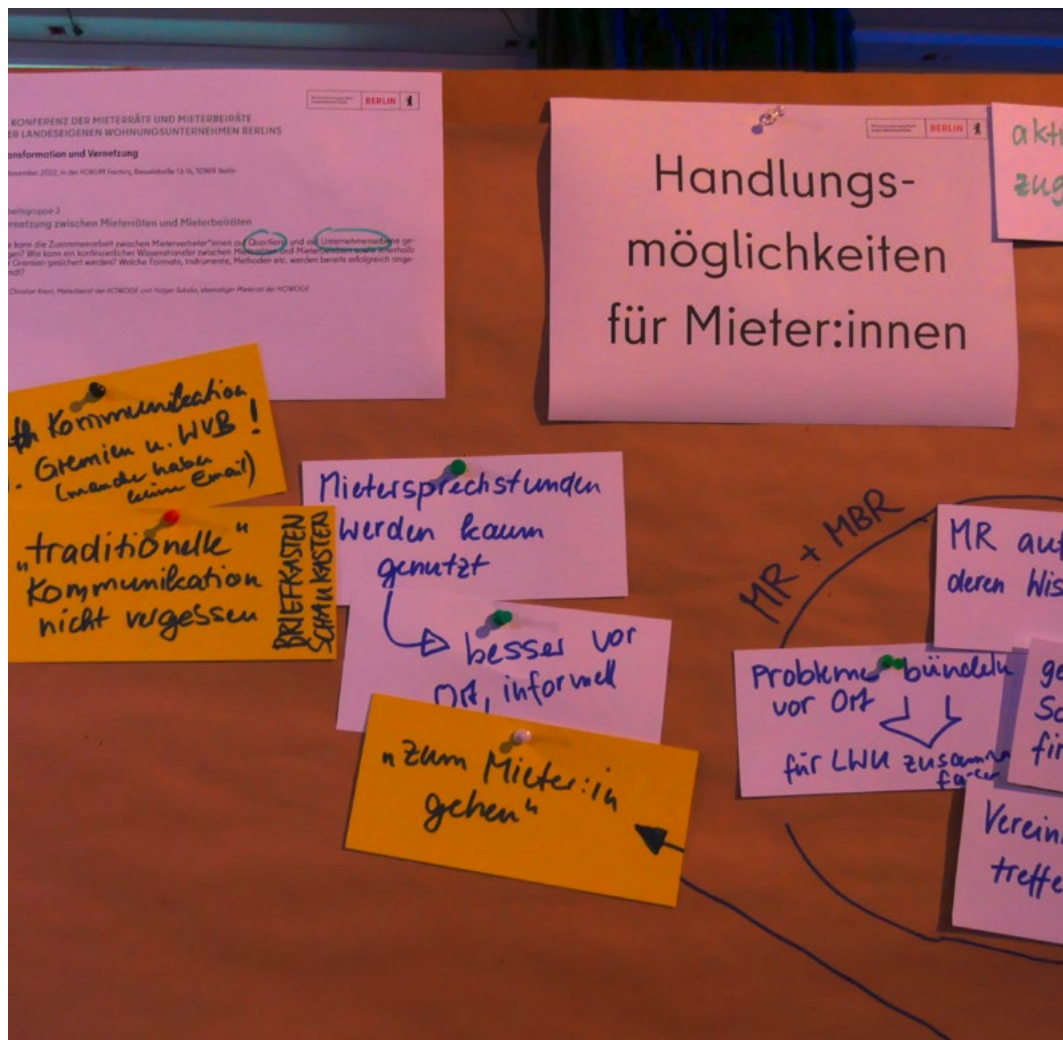 BERLIN
KONFERENZ DER MIETERRÄTE UND MIETERBEIRÄTE
ER LANDESEIGENEN WOHNUNGSUNTERNEHMEN BERLINS
ansformation und Vernetzung
November 2022, in der FORUM Factory, Besselstraße 13-14, 10969 Berlin
beitsgruppe 2
ernetzung zwischen Mieterräten und Mieterbeiräten
e kann die Zusammenarbeit zwischen Mietervertreter*innen auf Quartiers und auf Unternehmensebene ge-
gen? Wie kann ein kontinuierlicher Wissenstransfer zwischen Mieterräten und Mieterbeiräten sowie innerhalb
r Gremien gesichert werden? Welche Formate, Instrumente, Methoden etc. werden bereits erfolgreich ange-
ndt?
BERLIN
Handlungs-
möglichkeiten
für Mieter:innen
akti
zug
Kommunikation
Gremien u. WVB!
(manche haben
keine Email)
"traditionelle"
Kommunikation
nicht vergessen
BRIEFKASTEN
SCHAUKASTEN
Mietersprechstunden
werden kaum
genutzt
besser vor
Ort, informell
"Zum Mieter:in
gehen"
MR + MBR
MR auf
deren Wis
Probleme bündeln
vor Ort
für LWU zusamm
ge
Sc
fin
Verein
treffe